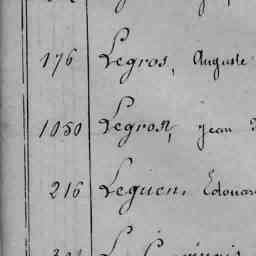 176 Legros, Auguste
1050 Legros, Jean
216 Leguen, Édouard